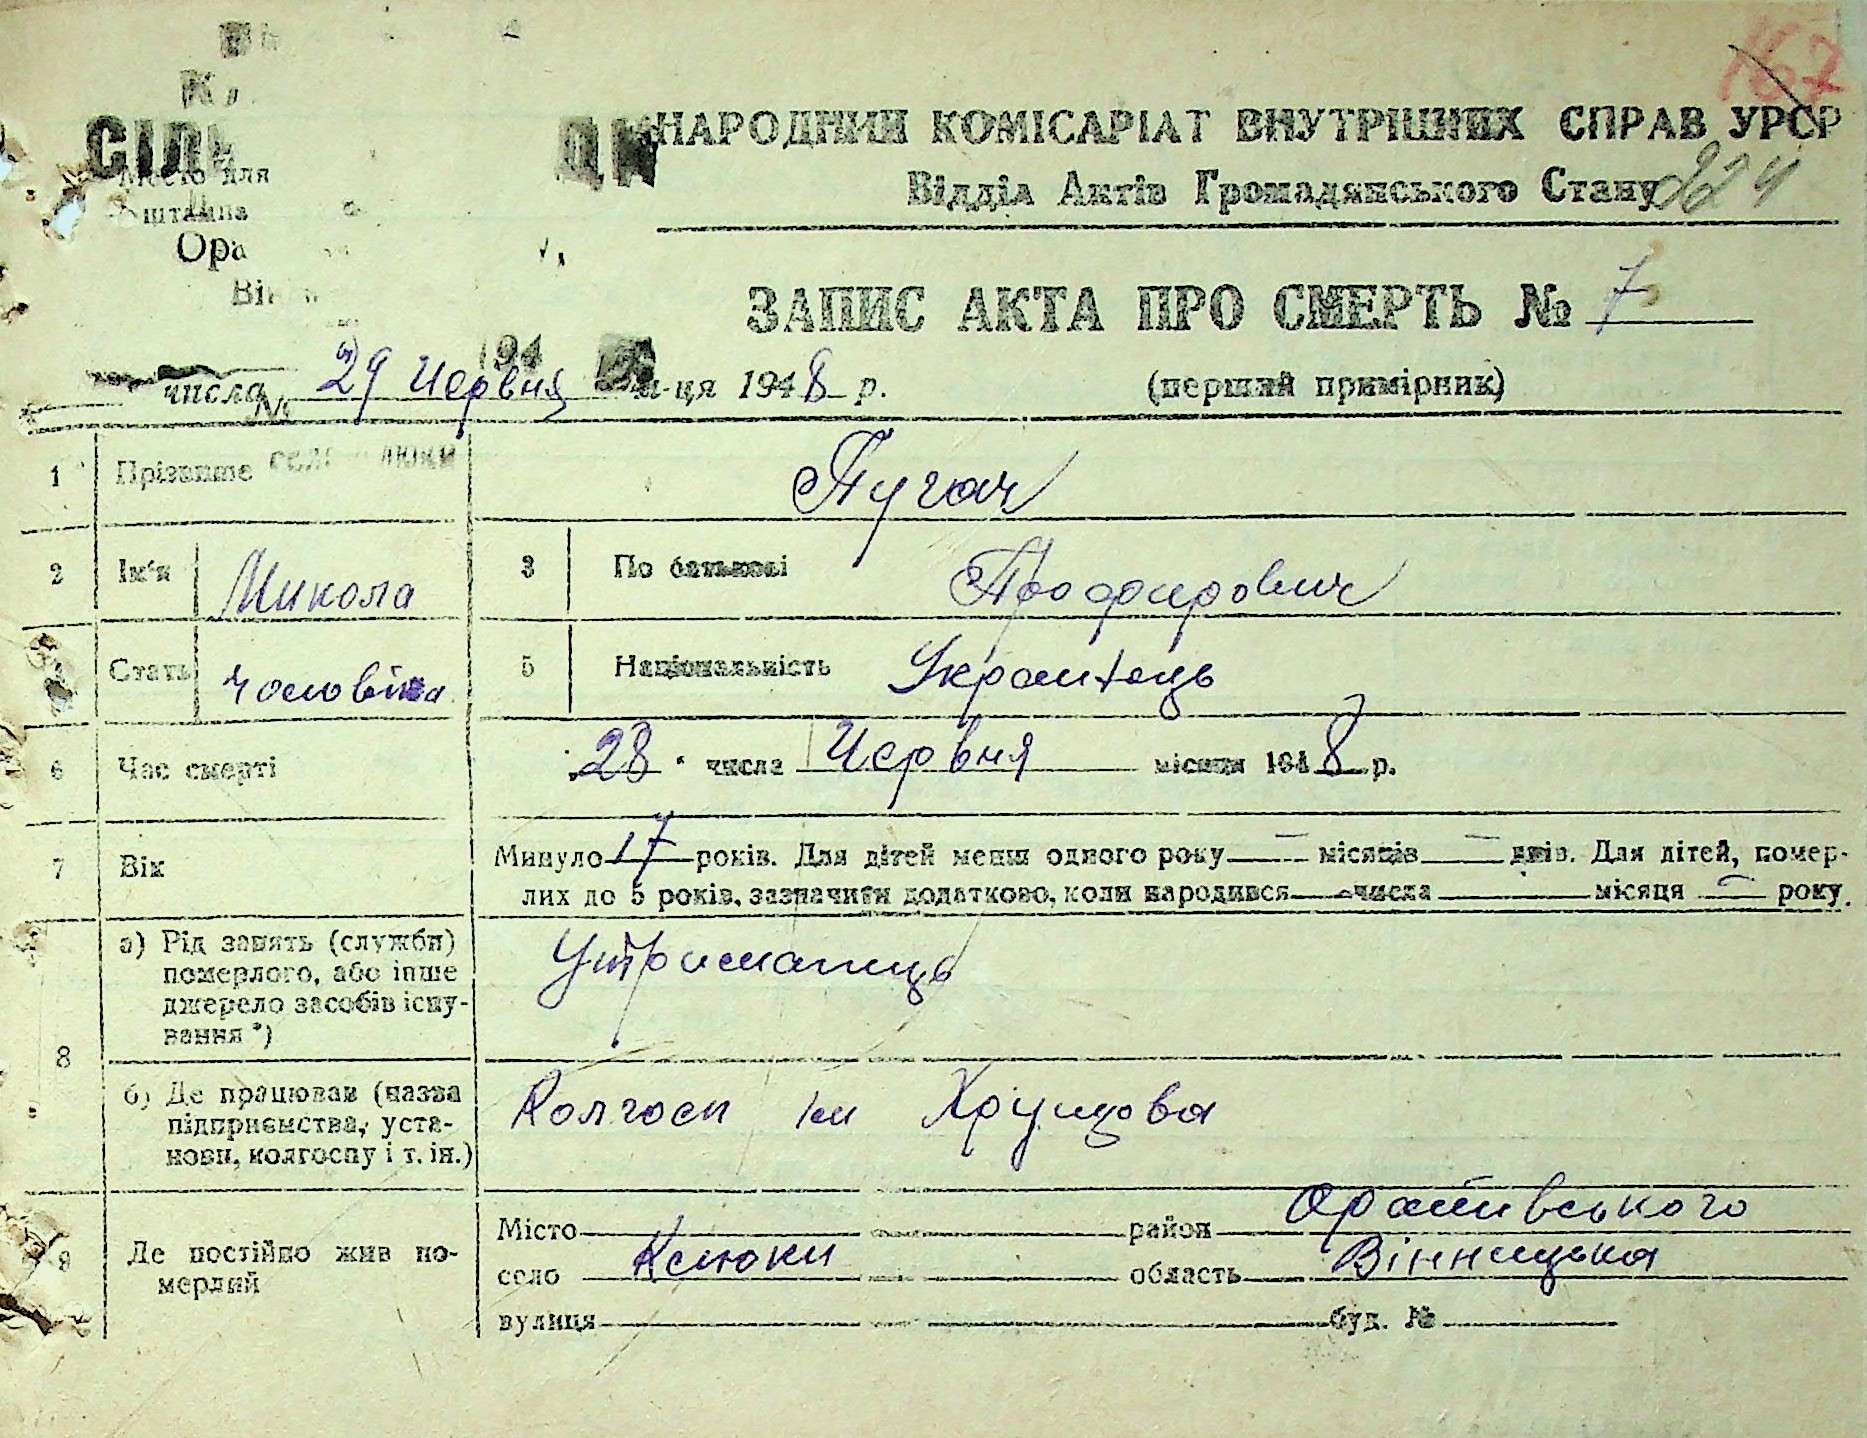 167
СІЛЬ
НАРОДНИЙ КОМІСАРІАТ ВНУТРІШНІХ СПРАВ УРСР
Место для
Відділ Актів Громадянського Стану 224
штампа
Ора
ЗАПИС АКТА ПРО СМЕРТЬ № 7
194
числа 29 Червня м-ця 1948 р. (перший примірник)
№
1 Прізвище Пугач
2 Ім'я Микола 3 По батькові Профирович
Стать чоловіча 5 Національність Українець
6 Час смерті „28" числа Червня місяця 1948 р.
7 Вік Минуло 17 років. Для дітей менш одного року — місяців — днів. Для дітей, помер-
лих до 5 років, зазначити додатково, коли народився — числа місяця — року.
8 а) Рід занять (служби)
померлого, або інше
джерело засобів існу-
вання *) Утриманець
б) Де працював (назва
підприємства, уста-
нови, колгоспу і т. ін.) Колгосп ім Хрущова
9 Де постійно жив по-
мерлий
Місто район Оратівського
село Клюки область Вінницька
вулиця буд. №